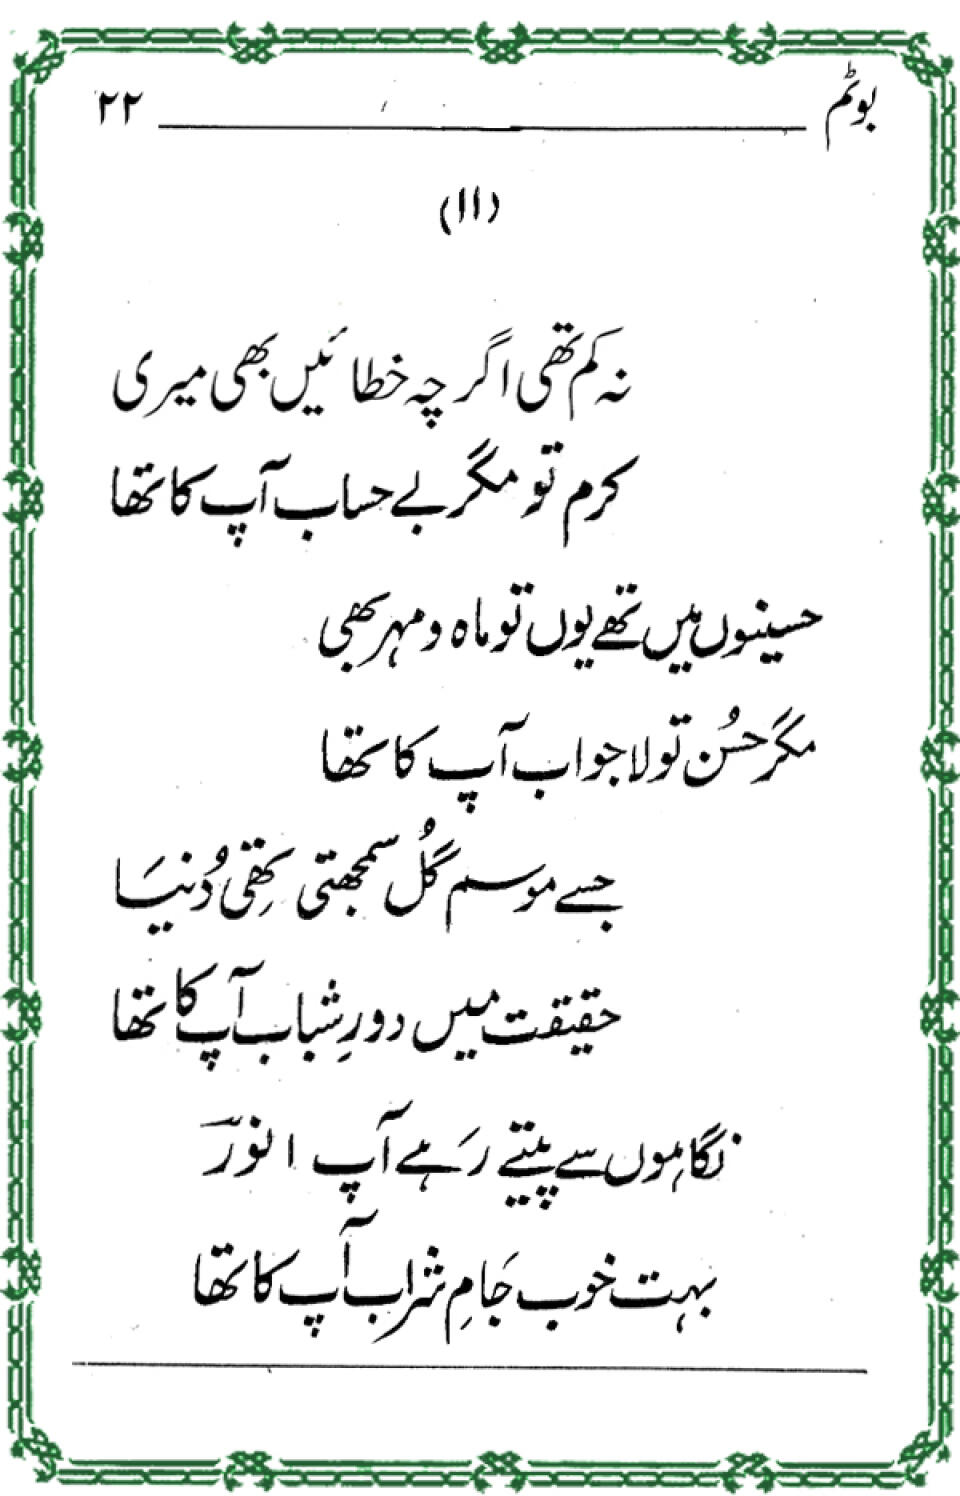 بوٹم ۲۲
(۱۱)
نہ کم تھی اگرچہ خطائیں بھی میری
کرم تو مگر بے حساب آپ کا تھا
حسینوں میں تھے یوں تو ماہ و مہر بھی
مگر حُسن تو لاجواب آپ کا تھا
جسے موسم گُل سمجھتی تھی دُنیَا
حقیقت میں دورِ شباب آپ کا تھا
نگاہوں سے پیتے رَہے آپ انورؔ
بہت خوب جَامِ شراب آپ کا تھا